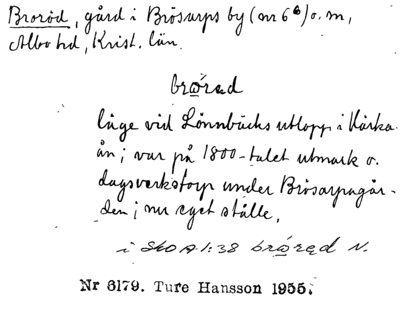 Broröd, gård i Brösarps by (nr 6⁶) o. m,
Albo hd, Krist. län.
brǫ́rad
läge vid Lönnbäcks utlopp i Kärka-
ån; var på 1800-talet utmark o.
dagsverkstorp under Brösarpsgår-
den; nu eget ställe.
i Sko A1:38 brǫ́rąd N.
Nr 6179. Ture Hansson 1955.